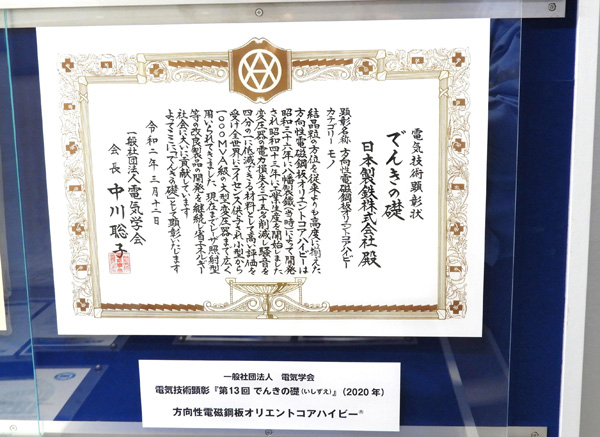 電気技術顕彰状
でんきの礎
日本製鉄株式会社 殿
顕彰名称 方向性電磁鋼板オリエントコアハイビー
カテゴリー モノ
結晶粒の方位を従来よりも高度に揃えた
方向性電磁鋼板オリエントコアハイビーは
昭和三十六年に八幡製鐵(当時)によって開発
され昭和四十三年に工業生産を開始しました
変圧器の電力損失を二十五%削減し騒音を
四分の一に低減できる材料として高い評価を
受け全世界にライセンス供与され小型から
一〇〇〇MVA級の大型変圧器まで広く
用いられてきました 現在までレーザ照射型
等の改良製品の開発を継続し省エネルギー
社会に大いに貢献しています
よってここに「でんきの礎」として顕彰いたします
令和二年三月十二日
一般社団法人電気学会
会長 中川聡子
一般社団法人 電気学会
電気技術顕彰『第13回 でんきの礎(いしずえ)』(2020年)
方向性電磁鋼板オリエントコアハイビー®